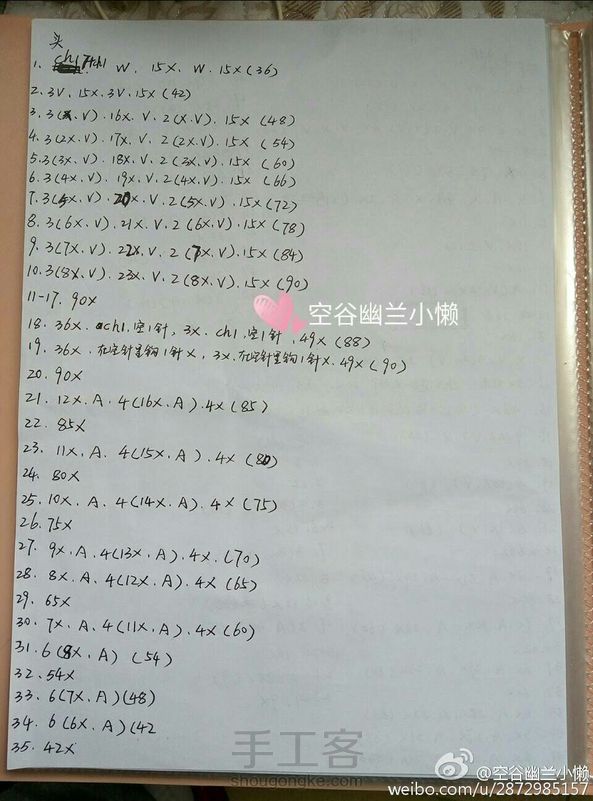 头
1. ch17+ch1 W. 15X. W. 15X(36)
2. 3V. 15X. 3V. 15X(42)
3. 3(X.V). 16X. V. 2(X.V). 15X (48)
4. 3(2X.V). 17X. V. 2(2X.V). 15X (54)
5. 3(3X.V). 18X. V. 2(3X.V). 15X (60)
6. 3(4X.V). 19X. V. 2(4X.V). 15X (66)
7. 3(5X.V). 20X. V. 2(5X.V). 15X(72)
8. 3(6X.V). 21X. V. 2(6X.V). 15X(78)
9. 3(7X.V). 22X. V. 2(7X.V). 15X(84)
10. 3(8X.V). 23X. V. 2(8X.V). 15X(90)
11-17. 90X
空谷幽兰小懒
18. 36X. ch1, 空1针, 3X. ch1, 空1针. 49X(88)
19. 36X. 在空针里钩1针X, 3X. 在空针里钩1针X. 49X(90)
20. 90X
21. 12X. A. 4(16X.A). 4X(85)
22. 85X
23. 11X. A. 4(15X.A). 4X(80)
24. 80X
25. 10X. A. 4(14X.A). 4X(75)
26. 75X
27. 9X. A. 4(13X.A). 4X. (70)
28. 8X. A. 4(12X.A). 4X(65)
29. 65X
30. 7X. A. 4(11X.A). 4X(60)
31. 6(8X.A) (54)
32. 54X
33. 6(7X.A)(48)
34. 6(6X.A)(42
35. 42X
手工客
shougongke.com
@空谷幽兰小懒
weibo.com/u/2872985157